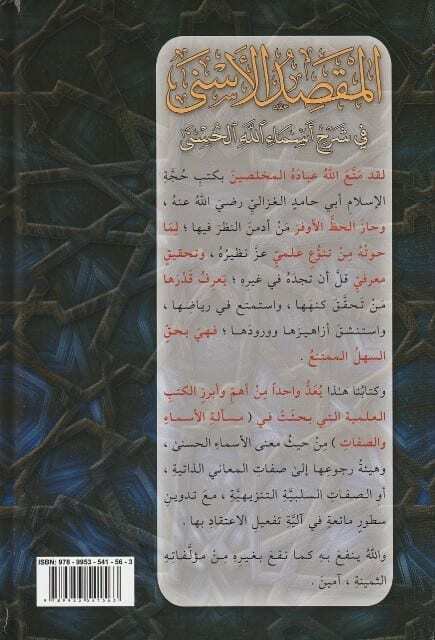 المقصد الأسنى
في شرح أسماء الله الحسنى
لقد متَّع اللهُ عبادَهُ المخلصينَ بكتبِ حُجَّة
الإسلام أبي حامدٍ الغزاليِّ رضيَ اللهُ عنهُ ،
وحازَ الحظَّ الأوفرَ مَنْ أدمنَ النظرَ فيها ؛ لِمَا
حوتْهُ مِنْ تنوُّعٍ علميٍّ عزَّ نظيرُهُ ، وتحقيقٍ
معرفيٍّ قلَّ أن تجدَهُ في غيرِهِ ؛ يَعرفُ قَدْرَها
مَنْ تحقَّقَ كنهَها ، واستمتع في رياضها ،
واستنشقَ أزاهيرَها وورودَها ؛ فهيَ بحقٍّ
السهلُ الممتنعُ .
وكتابُنا هذا يُعَدُّ واحداً مِنْ أهمِّ وأبرزِ الكتبِ
العلمية التي بحثَتْ في ( مسألةِ الأسماءِ
والصفاتِ ) مِنْ حيثُ معنى الأسماءِ الحسنى ،
وهيئةُ رجوعِها إلى صفاتِ المعاني الذاتيةِ ،
أو الصفاتِ السلبيَّةِ التنزيهيَّةِ ، معَ تدوينِ
سطورٍ ماتعةٍ في آليَّةِ تفعيلِ الاعتقادِ بها .
واللهُ ينفعُ بهِ كما نفعَ بغيرِهِ مِنْ مؤلَّفاتِهِ
الثمينةِ ، آمينَ .
ISBN: 978 - 9953 - 541 - 56 - 3
9 789953 541563